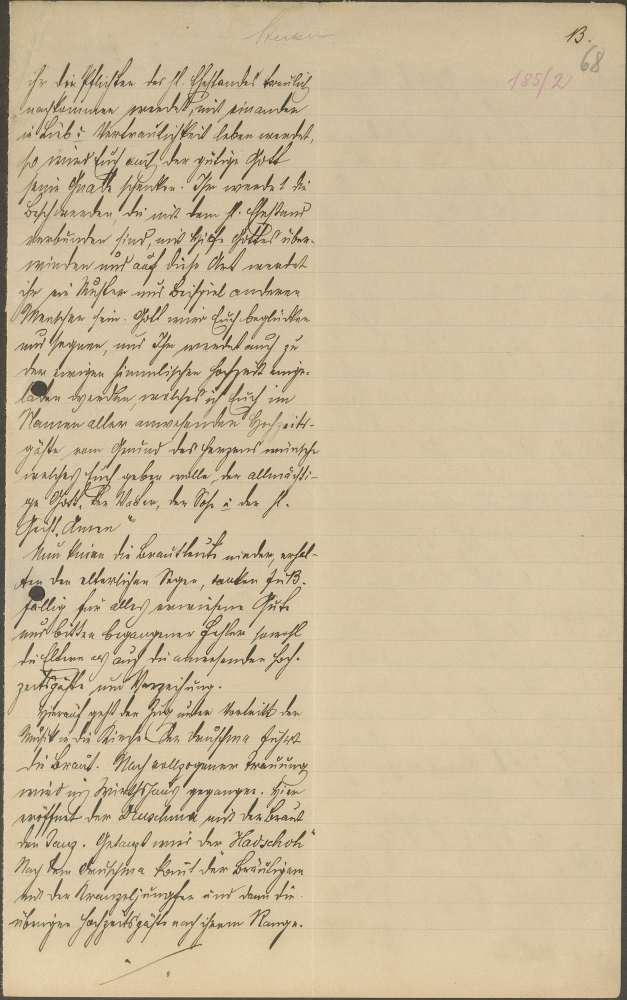 13.
68
185/2
ihr die Pflichten des hl. Ehestandes treulich
nachkommen werdet, mit einander
in Lieb u. Vertraulichkeit leben werdet,
so wird Euch auch der gütige Gott
seine Gnade schenken. Ihr werdet die
Beschwerden, die mit dem hl. Ehestand
verbunden sind, mit Hilfe Gottes über-
winden und auf diese Art werdet
ihr ein Muster und Beispiel anderen
Menschen sein. Gott wird Euch beglücken
und segnen, und Ihr werdet auch zu
der ewigen himmlischen Hochzeit einge-
laden werden, welches ich Euch im
Namen aller anwesenden Hochzeits-
gäste vom Grund des Herzens wünsche
welches Euch geben wolle, der allmächti-
ge Gott, der Vater, der Sohn u. der hl.
Geist, Amen"
Nun knien die Brautleute nieder, erhal-
ten den elterlichen Segen, danken fuß-
fällig für alles erwiesene Gute
und bitten begangener Fehler sowohl
die Eltern als auch die anwesenden Hoch-
zeitsgäste um Verzeihung.
Hierauf geht der Zug unter Vortritt der
Musik in die Kirche. Der Druschma führt
die Braut. Nach vollzogener Trauung
wird ins Wirthshaus gegangen. Hier
eröffnet der Druschma mit der Braut
den Tanz. Getanzt wird der Hadschoh"
Nach dem Druschma kommt der Bräutigam
mit der Kranzeljungfer und dann die
übrigen Hochzeitsgäste nach ihrem Range.